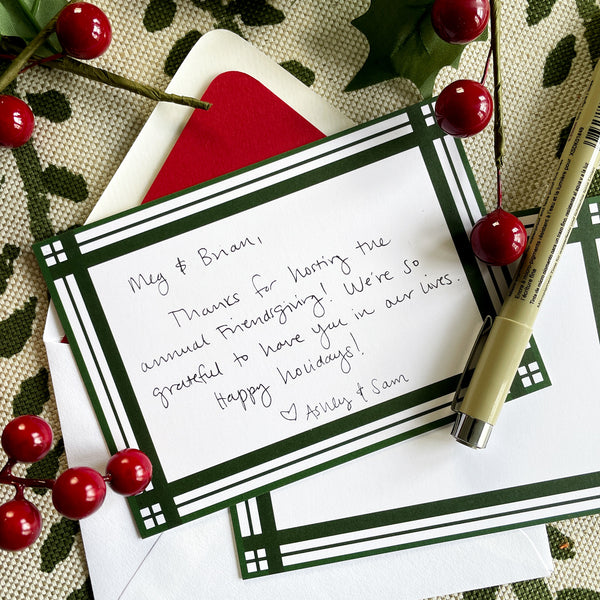 Meg & Brian,
Thanks for hosting the
annual Friendsgiving! We're so
grateful to have you in our lives.
Happy holidays!
♡ Ashley & Sam